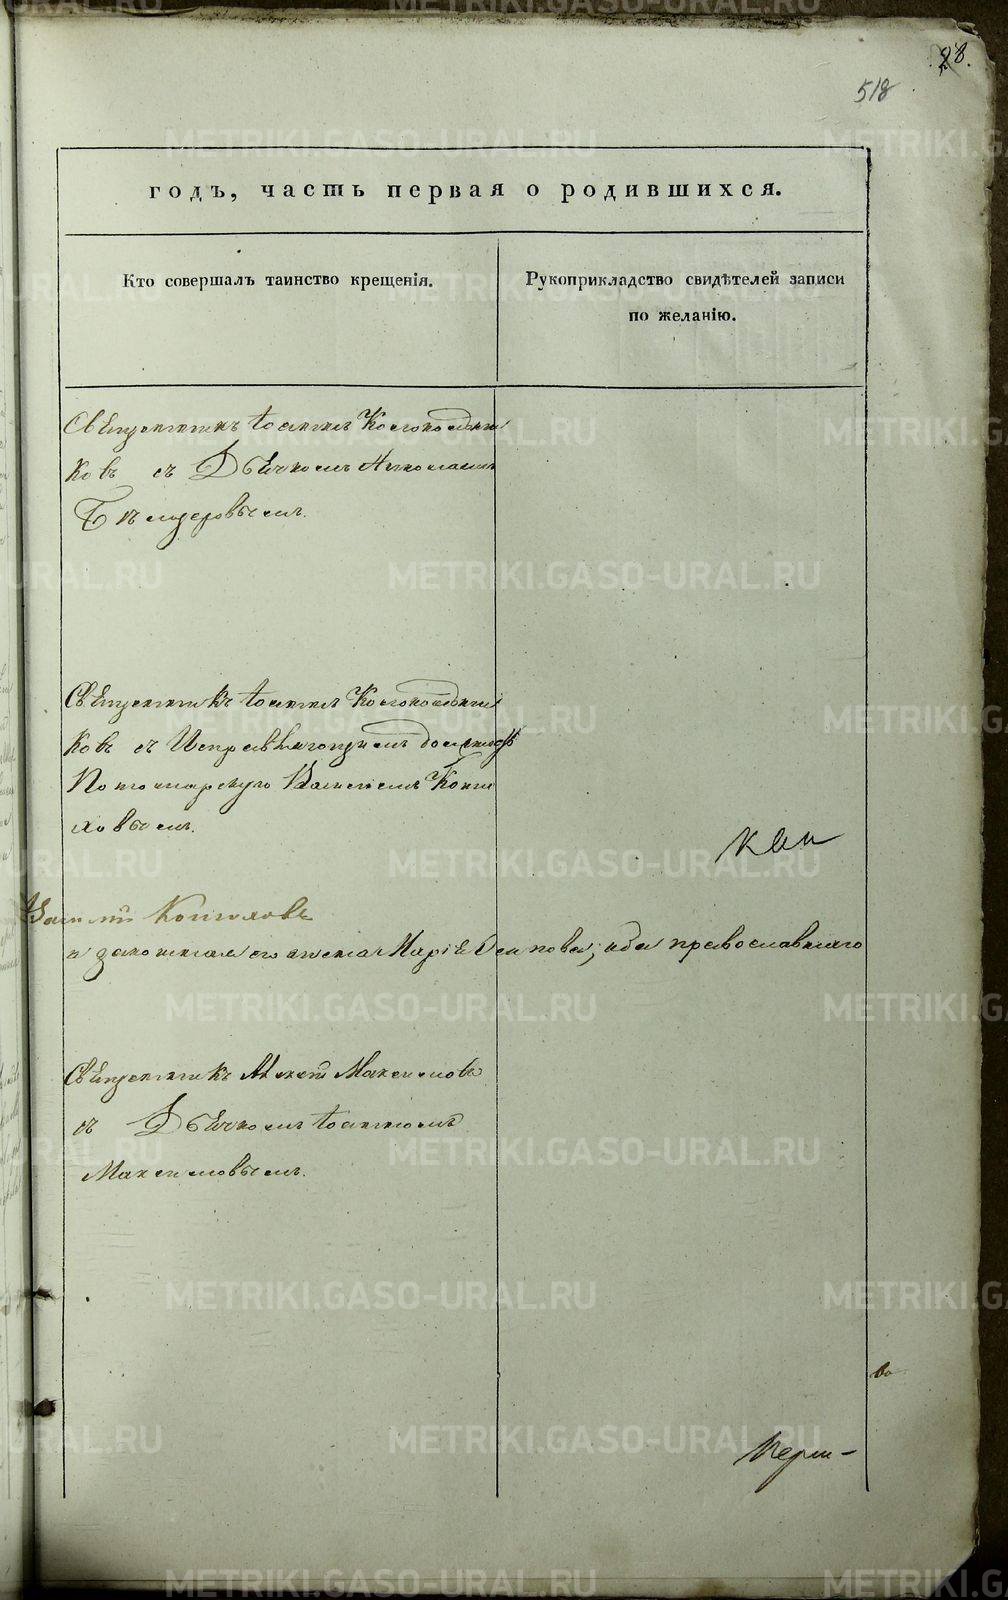 28.
518
годъ, часть первая о родившихся.
Кто совершалъ таинство крещенія.
Рукоприкладство свидѣтелей записи
по желанію.
Священникъ Іоаннъ Колокольни
ковъ съ Дьячкомъ Николаемъ
Священникъ Іоаннъ Колокольни
ковъ съ Исправляющимъ должность
Пономарскую Василіемъ Копы
ловымъ.
Василій Копыловъ
и законная его жена Марія оба православнаго
Священникъ Алексѣй Максимовъ
съ Дьячкомъ Іоанномъ
Максимовымъ.
во
Перм-
METRIKI.GASO-URAL.RU